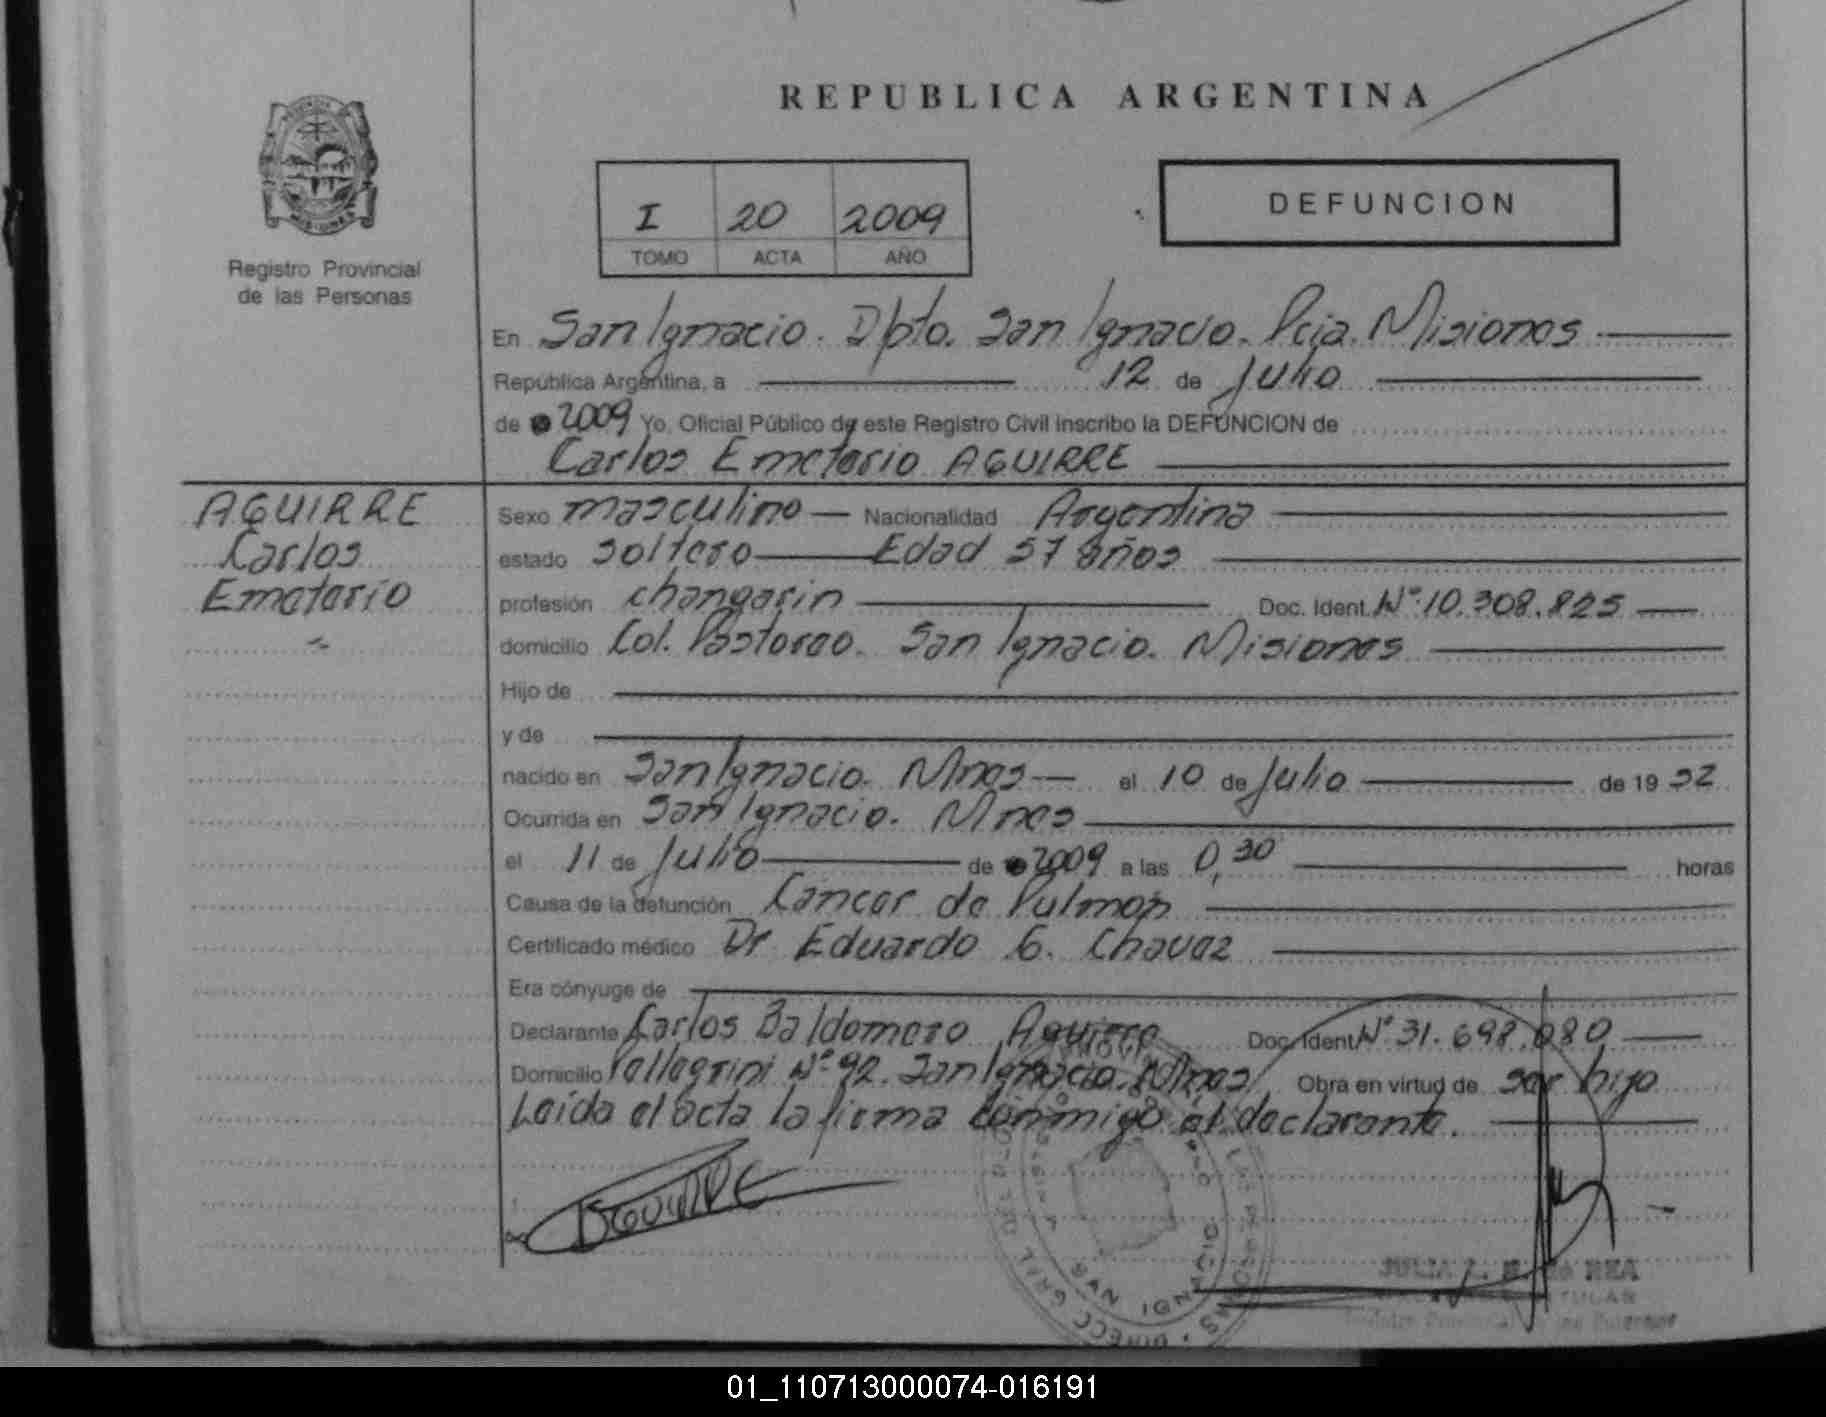 REPUBLICA ARGENTINA
I 20 2009
TOMO ACTA AÑO
DEFUNCION
Registro Provincial
de las Personas
En San Ignacio. Dpto. San Ignacio. Pcia. Misiones
República Argentina, a 12 de Julio
de 2009 Yo, Oficial Público de este Registro Civil inscribo la DEFUNCION de
Carlos Emeterio AGUIRRE
AGUIRRE
Carlos
Emeterio
Sexo masculino Nacionalidad Argentina
estado soltero Edad 57 años
profesión changarin Doc. Ident. Nº 10.308.825
domicilio Col. Pastoreo. San Ignacio. Misiones
Hijo de
y de
nacido en San Ignacio. Mnes el 10 de Julio de 19 52
Ocurrida en San Ignacio. Mnes
el 11 de Julio de 2009 a las 0,30 horas
Causa de la defunción Cancer de Pulmon
Certificado médico Dr Eduardo G. Chavez
Era cónyuge de
Declarante Carlos Baldomero Aguirre Doc. Ident Nº 31.698.080
Domicilio Pellegrini Nº 92. San Ignacio. Mnes Obra en virtud de ser hijo
Leída el acta la firma conmigo el declarante.
AGUIRRE
SAN IGNACIO
JULIA REA
01_110713000074-016191